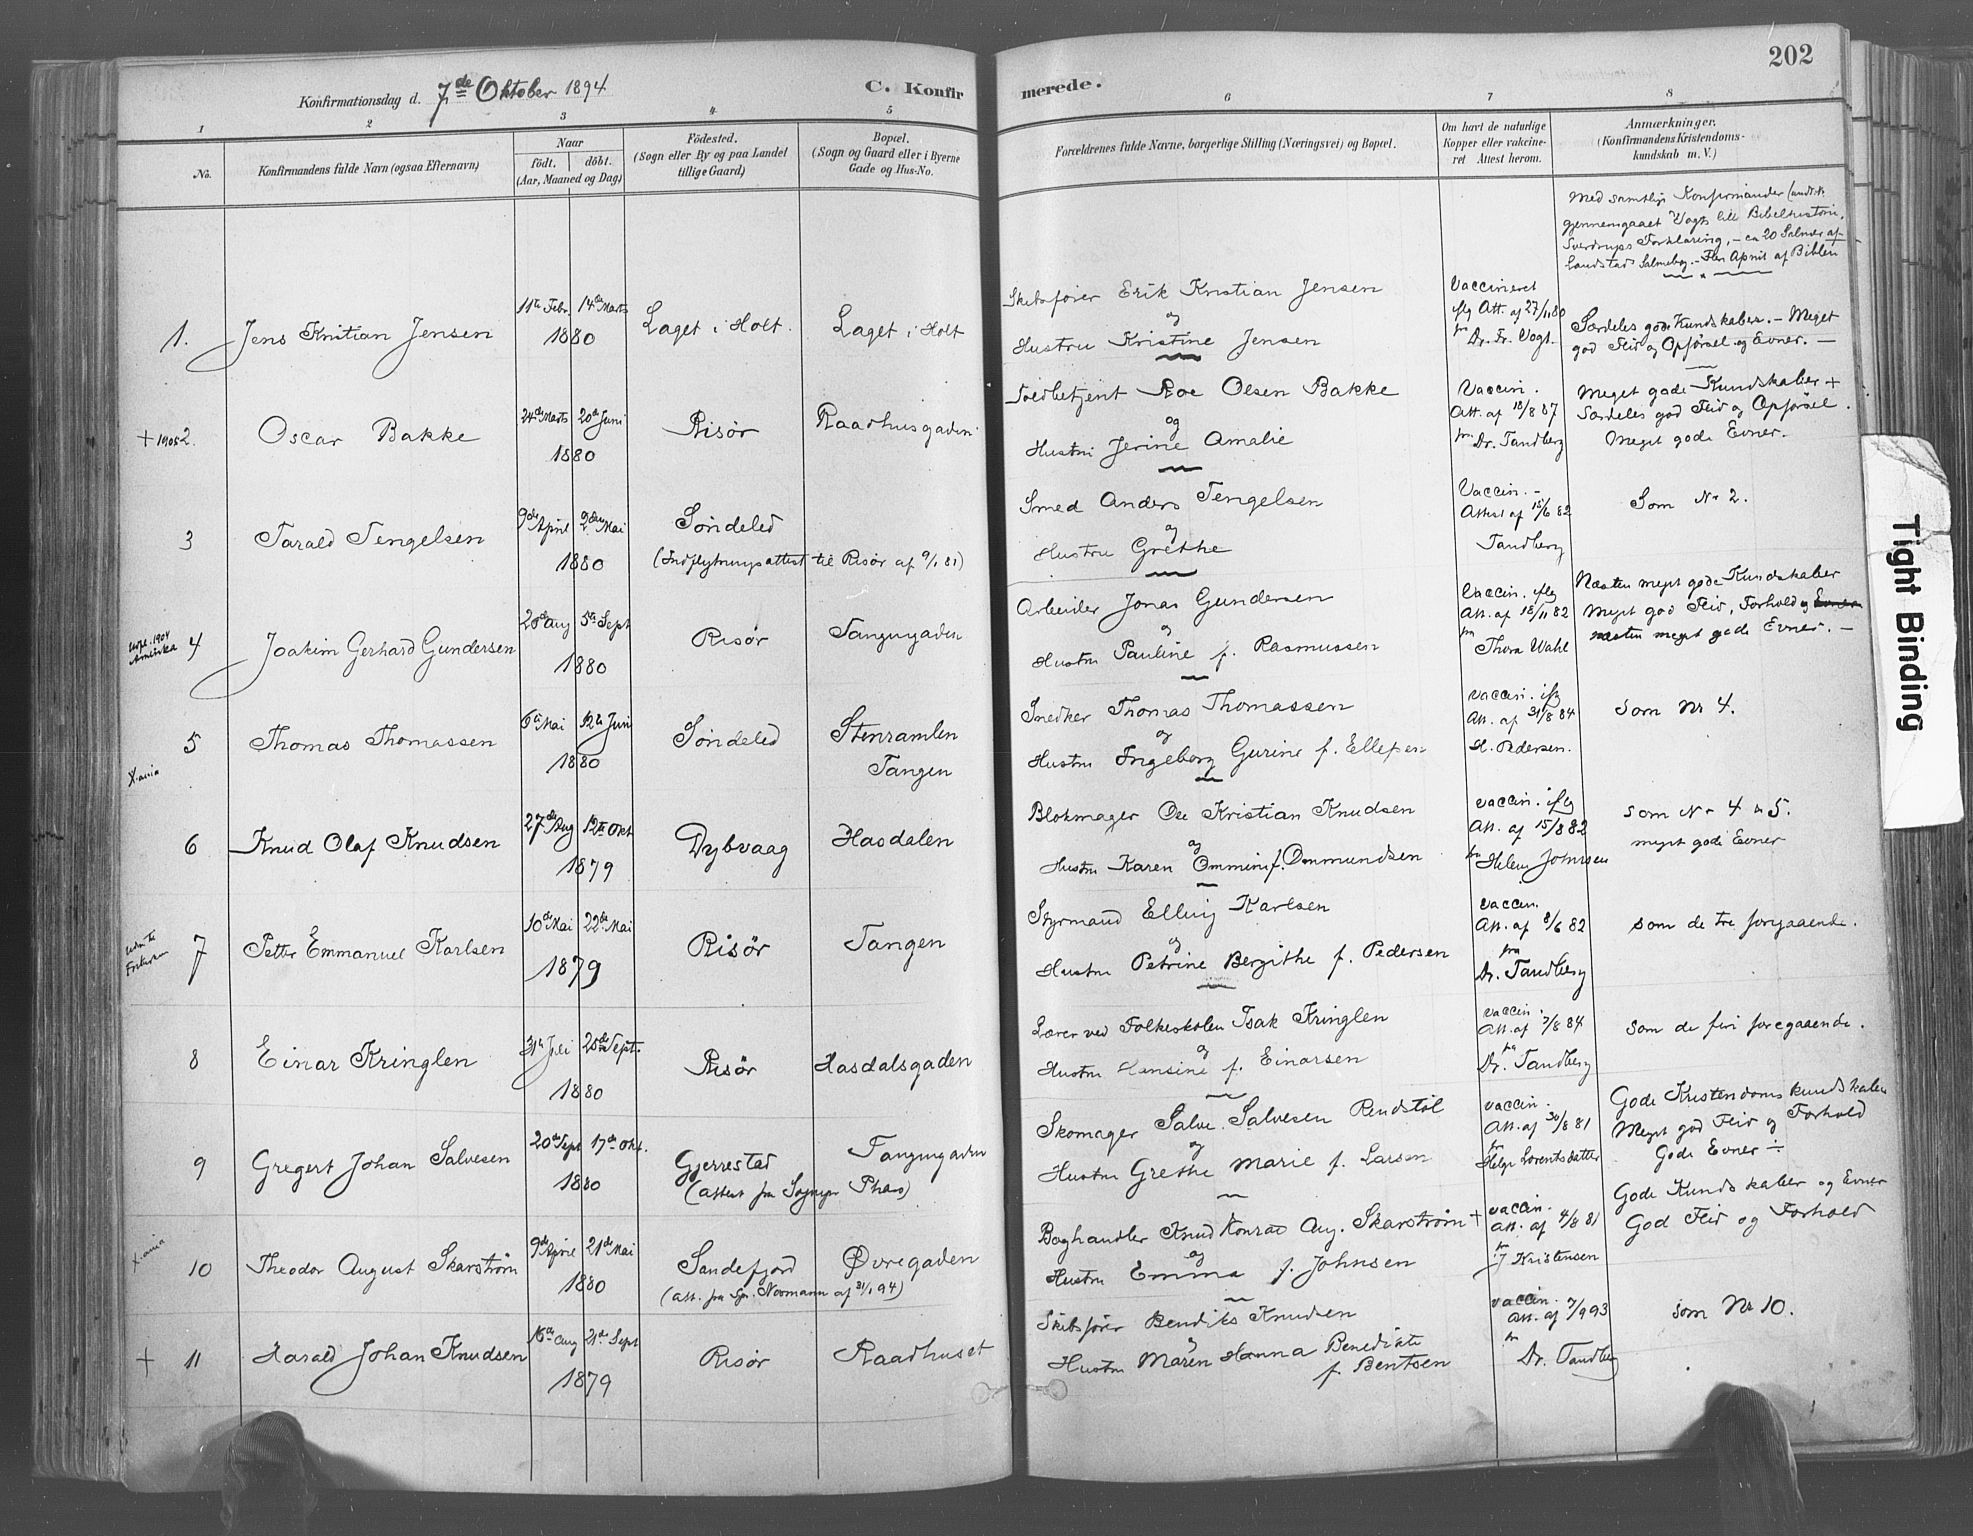 202
Konfirmationsdag d. 7de Oktober 1894
C. Konfirmerede.
1 2 3 4 5 6 7 8
No.
Konfirmandens fulde Navn (ogsaa Efternavn)
Naar
födt. döbt.
(Aar, Maaned og Dag)
Födested.
(Sogn eller By og paa Landet
tillige Gaard)
Bopæl.
(Sogn og Gaard eller i Byerne
Gade og Hus-No.
Forældrenes fulde Navne, borgerlige Stilling (Næringsvei) og Bopæl.
Om havt de naturlige
Kopper eller vaccine-
ret Attest herom.
Anmærkninger.
(Konfirmandens Kristendoms-
kundskab m. V.)
Med samtlige Konfirmander
gjennemgaaet Vogts lille Bibelhistorie,
Sverdrups Forklaring, – ca 20 Salmer af
Landstads Salmebog.
1. Jens Kristian Jensen
11te Febr. 14de Marts
1880
Laget i Holt.
Laget i Holt
Skibsfører Erik Kristian Jensen
og
Hustru Kristine Jensen
Vaccineret
iflg Att. af 27/11 80
fra Dr. Fr. Vogt.
Særdeles gode Kundskaber. – Meget
god Flid og Opførsel og Evner. –
+ 1905 2. Oscar Bakke
24de Marts 20de Juni
1880
Risør
Raadhusgaden
Toldbetjent Roe Olsen Bakke
og
Hustru Jerine Amalie
Vaccin.
Att. af 18/8 87
fra Dr. Tandberg
Meget gode Kundskaber +
Særdeles god Flid og Opførsel.
Meget gode Evner.
3 Tarald Tengelsen
9de April 2den Mai
1880
Søndeled
(Indflytningsattest til Risør af 9/1 81)
Smed Anders Tengelsen
og
Hustru Grethe
Vaccin. –
Attest af 15/6 82
Tandberg
Som Nr 2.
1904
Amerika
4 Joakim Gerhard Gundersen
28de Aug 5te Sept
1880
Risør
Tangengaden
Arbeider Jonas Gundersen
og
Hustru Pauline f. Rasmussen
Vaccin. iflg
Att. af 18/11 82
fra Thora Wahl
Næsten meget gode Kundskaber
Meget god Flid, Forhold og Evner
næsten meget gode Evner. –
X.ania
5 Thomas Thomassen
6te Mai 12te Juni
1880
Søndeled
Stenramlen
Tangen
Snedker Thomas Thomassen
og
Hustru Ingeborg Gurine f. Ellefsen
vaccin. iflg
Att. af 31/8 84
H. Pedersen.
Som Nr 4.
6 Knud Olaf Knudsen
27de Aug 12te Okt
1879
Dybvaag
Hasdalen
Blokmager Ole Kristian Knudsen
og
Hustru Karen Ommine f. Ommundsen
vaccin. iflg
Att. af 15/8 82
fra Helene Johnsen
Som Nr 4 & 5.
meget gode Evner
7 Petter Emmanuel Karlsen
10de Mai 22de Mai
1879
Risør
Tangen
Styrmand Elling Karlsen
og
Hustru Petrine Bergithe f. Pedersen
vaccin.
Att. af 8/6 82
fra
Dr. Tandberg
Som de tre forgaaende.
8 Einar Kringlen
31te Juli 25de Sept.
1880
Risør
Hasdalsgaden
Lærer ved Folkeskolen Isak Kringlen
og
Hustru Hansine f. Einarsen
vaccin.
Att. af 7/8 84
fra
Dr. Tandberg
Som de fire foregaaende.
9 Gregert Johan Salvesen
20de Sept 17de Okt.
1880
Gjerrestad
(Attest fra Sogneprest Thaas)
Tangengaden
Skomager Salve Salvesen Rendstøl
og
Hustru Grethe Marie f. Larsen
vaccin.
Att. af 30/8 81
fra
Helge Lorentsdatter
Gode Kristendomskundskaber
Meget god Flid og Forhold
Gode Evner ÷
X.ania
10 Theodor August Skarstrøm
9de April 21de Mai
1880
Sandefjord
(Att. fra Spr. Normann af 31/1 94)
Øvregaden
Boghandler Knud Konrad Aug. Skarstrøm +
og
Hustru Emma f. Johnsen
vaccin.
Att. af 4/8 81
fra
J Kristensen
Gode Kundskaber og Evner
God Flid og Forhold
+ 11 Harald Johan Knudsen
16de Aug 21de Sept
1879
Risør
Raadhuset
Skibsfører Bendiks Knudsen
og
Hustru Maren Hanna Benedikte
f. Bentsen
vaccin.
Att. af 7/9 93
fra
Dr. Tandberg
Som Nr 10.
Tight Binding